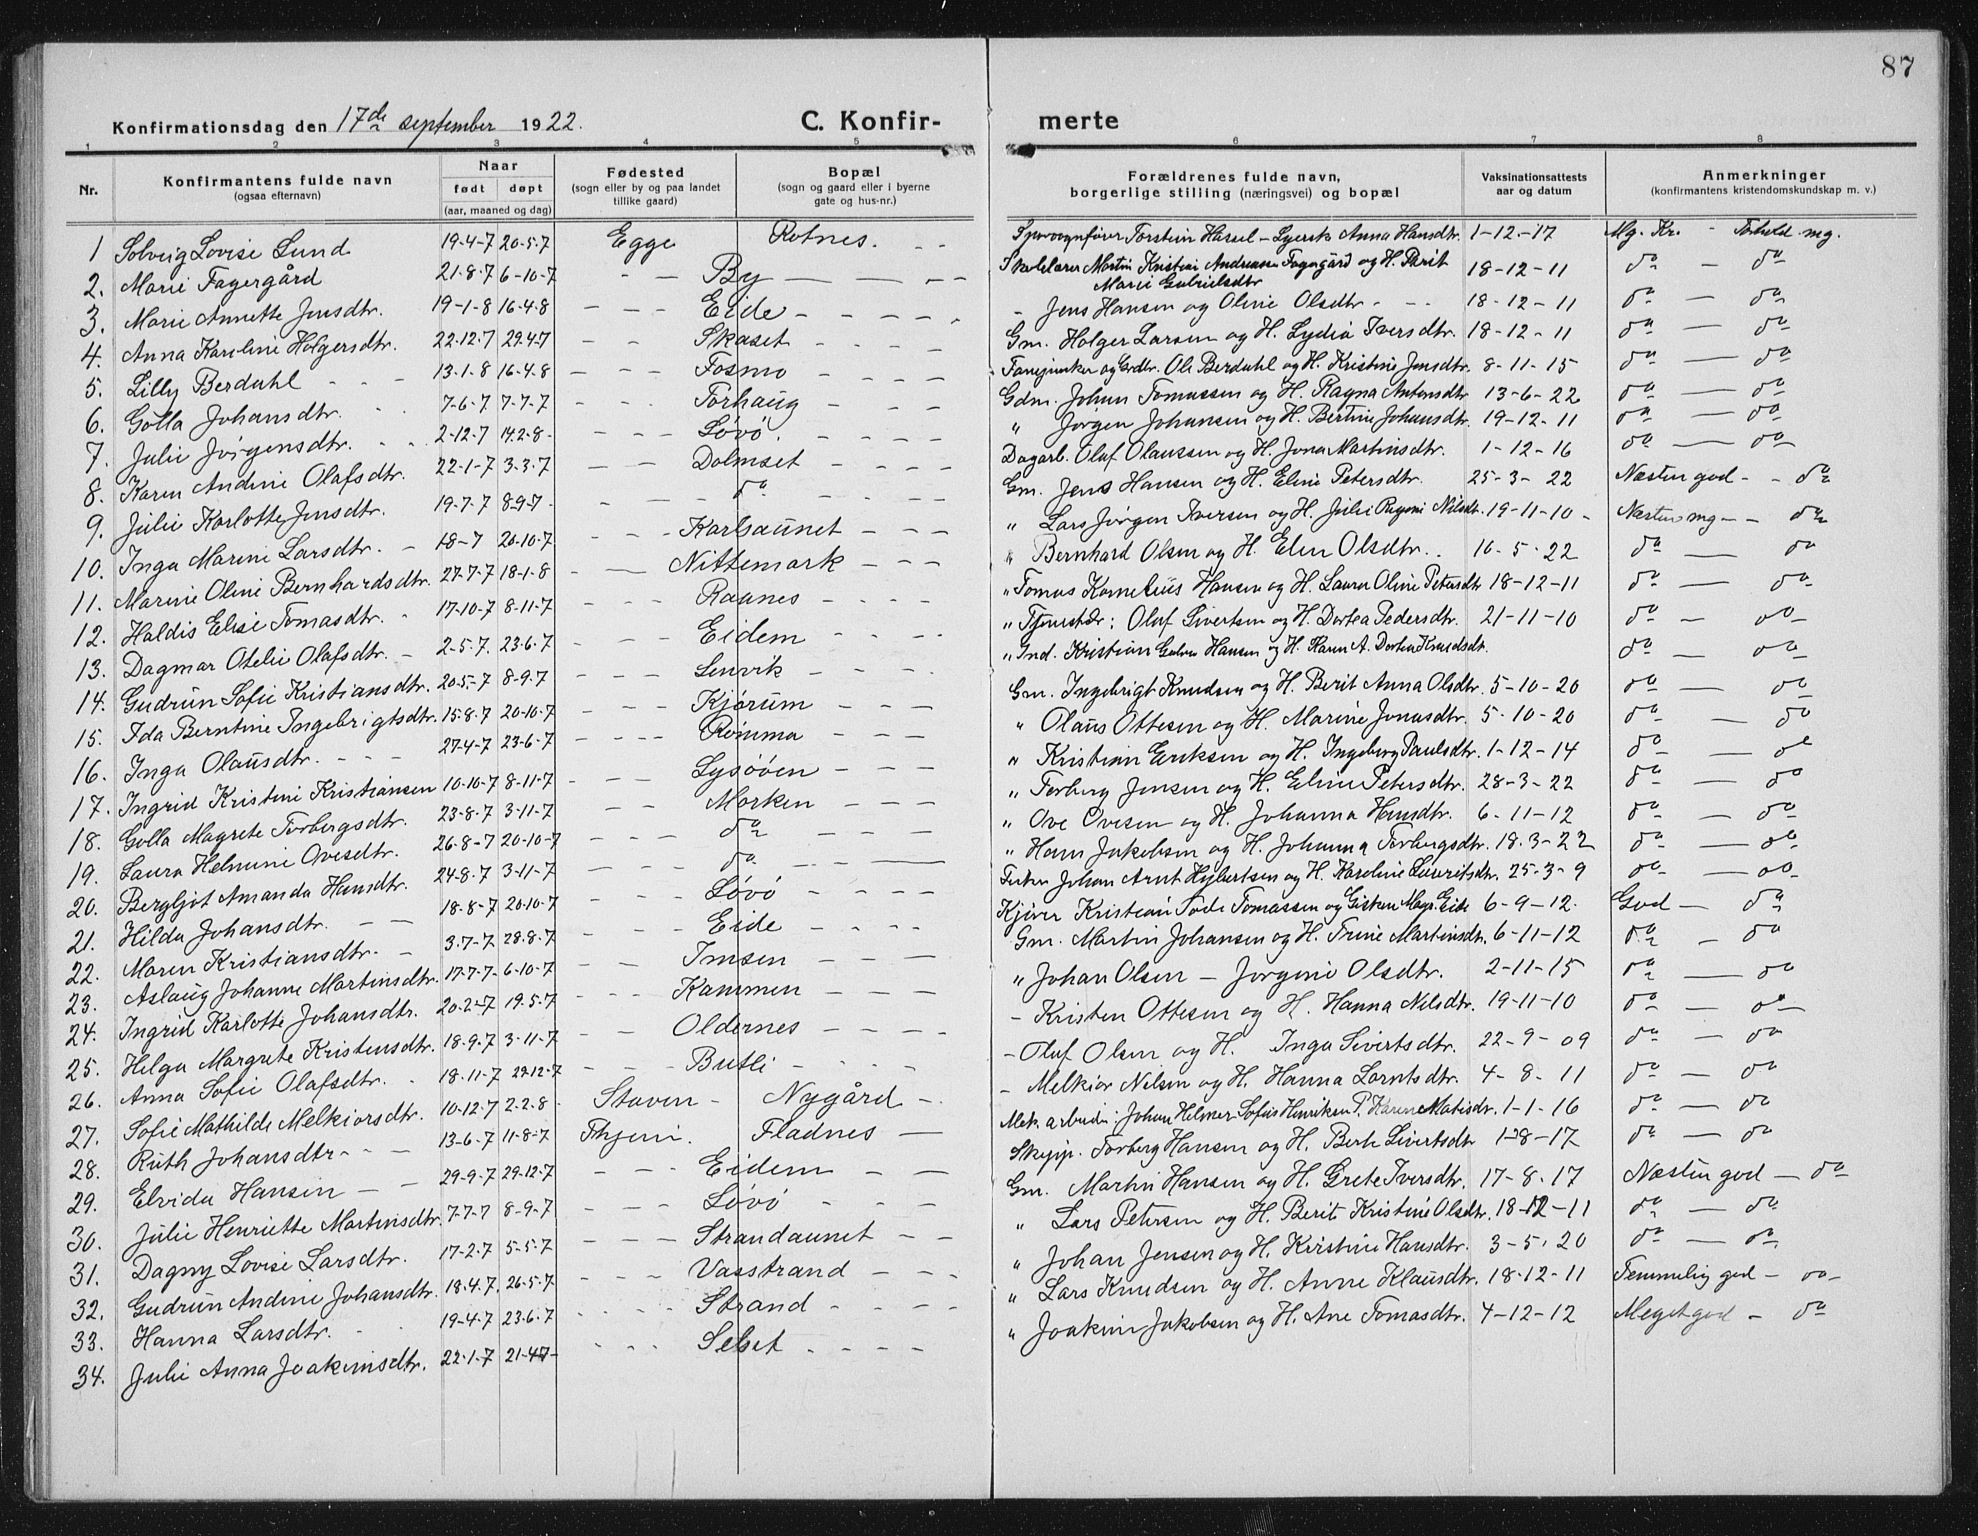 87
Konfirmationsdag den 17de september 1922.
C. Konfirmerte
1 2 3 4 5 6 7 8
Nr. | Konfirmantens fulde navn (ogsaa efternavn) | Naar født døpt (aar, maaned og dag) | Fødested (sogn eller by og paa landet tillike gaard) | Bopæl (sogn og gaard eller i byerne gate og hus-nr.) | Forældrenes fulde navn, borgerlige stilling (næringsvei) og bopæl | Vaksinationsattests aar og datum | Anmerkninger (konfirmantens kristendomskundskap m. v.)
1 Solveig Lovise Lund 19-4-7 20-5-7 Egge Rotnes. Torstein Hassel - Anna Hansdtr. 1-12-17 Mg. Kr. - Forhold mg.
2. Marie Fagergård 21-8-7 6-10-7 - - By Skolelærer Martin Kristian Andreassen Fagergård og H. Berit Marie Gabrielsdtr 18-12-11 do - do
3. Marie Annette Jensdtr. 19-1-8 16-4-8 - - - Eide - Jens Hansen og Oline Olsdtr. 18-12-11 do - do
4. Anna Karoline Holgersdtr. 22-12-7 29-4-7 - - Skaset Gm. Holger Larsen og H. Lydia Iversdtr. 18-12-11 do - do
5. Lilly Berdahl 13-1-8 16-4-8 - - - Fosmo Fanejunker og Grdbr. Ole Berdahl og H. Kristine Jensdtr. 8-11-15 do - do
6. Golla Johansdtr. 7-6-7 7-7-7 - - - Torhaug Gdm. Johan Tomassen og H. Ragna Antonsdtr 13-6-22 do - do
7. Julie Jørgensdtr. 2-12-7 14-2-8 - - - Løvø. " Jørgen Johansen og H. Bertine Johansdtr. 19-12-11 do - do
8. Karen Andine Olafsdtr. 22-1-7 3-3-7 - - Dolmset Dagarb. Olaf Olaussen og H. Jona Martinsdtr. 1-12-16 do - do
9. Julie Karlotte Jensdtr. 19-7-7 8-9-7 - - do Gm. Jens Hansen og H. Eline Petersdtr. 25-3-22 Næsten god - - do
10. Inga Marine Larsdtr. 18-7 20-10-7 - - - Karlsaunet " Lars Jørgen Iversen og H. Julie Regine Nilsdt. 19-11-10 - Næsten mg - - do
11. Marine Oline Bernhardsdtr. 27-7-7 18-1-8 - Nittemark " Bernhard Olsen og H. Elen Olsdtr. 16-5-22 do - do
12. Haldis Elise Tomasdtr. 17-10-7 8-11-7 - - - Raanes " Tomas Kornelius Hansen og H. Laura Oline Petersdtr 18-12-11 do - do
13. Dagmar Otelie Olafsdtr. 2-5-7 23-6-7 - - - Eidem " Olaf Sivertsen og H. Dortea Pedersdtr. 21-11-10 do - do
14. Gudrun Sofie Kristiansdtr. 20-5-7 8-9-7 - - - Lenvik " Ind. Kristian Hansen og H. Karen A. Dortea Knudsdt. do - do
15. Ida Berntine Ingebrigtsdtr. 15-8-7 20-10-7 - - - Kjørum Gm. Ingebrigt Knudsen og H. Berit Anna Olsdtr. 5-10-20 do - do
16. Inga Olausdtr. 27-4-7 23-6-7 - - - Rømma " Olaus Ottesen og H. Marine Jonasdtr. 5-10-20 do - do
17. Ingrid Kristine Kristiansen 10-10-7 8-11-7 - - - Lysøøen " Kristian Eriksen og H. Ingeborg Paulsdtr. 1-12-14 do - do
18. Golla Magrete Torbergsdtr. 23-8-7 3-11-7 - - Morken " Torberg Jensen og H. Eline Petersdtr. 28-3-22 do - do
19. Laura Helmine Ovesdtr. 26-8-7 20-10-7 - - - do " Ove Ovesen og H. Johanna Hansdtr. 6-11-12 do - do
20. Bergljot Amanda Hansdtr. 24-8-7 3-11-7 - - do " Hans Jakobsen og H. Johanna Torbergsdtr. 18-3-22 do - do
21. Hilda Johansdtr. 18-8-7 20-10-7 - - - Løvø Johan Arnt Hylbertsen og H. Karoline Lauritsdtr. 25-3-9 do - do
22. Maren Kristiansdtr. 3-7-7 28-8-7 - - - Eide Kristian Tode Tomassen og Gisken Magr. Eide 6-9-12. God - do
23. Aslaug Johanne Martinsdtr. 17-7-7 6-10-7 - - Imsen Gm. Martin Johansen og H. Trine Martinsdtr. 6-11-12 do - do
24. Ingrid Karlotte Johansdtr. 20-2-7 19-5-7 - - - Kammen " Johan Olsen - Jørgine Olsdtr. 2-11-15 do - do
25. Helga Margrete Kristensdtr. 18-9-7 3-11-7 - - Oldernes - Kristen Ottesen og H. Hanna Nilsdtr. 19-11-10 do - do
26. Anna Sofie Olafsdtr. 18-11-7 29-12-7 - - - Butli - Olaf Olsen og H. Inga Sivertsdtr. 22-9-09 do - do
27. Sofie Mathilde Melkiorsdtr. 10-12-7 2-2-8 Staven - Nygård - Melkior Nilsen og H. Hanna Lorntsdtr. 4-8-11 do - do
28. Ruth Johansdtr 13-6-7 11-8-7 Fladnes Mek. arbeider: Johan Helmer Sofus Henriksen P. Karen Matisdtr. 1-1-16 do - do
29. Elvida Hansen 29-9-7 29-12-7 - - - Eidem Skipp. Torberg Hansen og H. Berte Sivertsdtr 1-8-17 do - do
30. Julie Henriette Martinsdtr. 7-7-7 8-9-7 - - - Løvø Gm. Martin Hansen og H. Grete Iversdtr. 17-8-17 Næsten god - do
31. Dagny Lovise Larsdtr. 17-2-7 5-5-7 - - - Strandaunet " Lars Petersen og H. Berit Kristine Olsdtr. 18-12-11 do - do
32. Gudrun Andine Johansdtr. 18-4-7 26-5-7 - - - Vasstrand " Johan Jensen og H. Kristine Hansdtr. 3-5-20 do - do
33. Hanna Larsdtr. 19-4-7 23-6-7 - - - Strand " Lars Knudsen og H. Anne Klausdtr. 18-12-11 Temmelig god - do
34. Julie Anna Joakimsdtr. 22-1-7 21-4-7 - - - Selset " Joakim Jakobsen og H. Ane Tomasdtr. 4-12-12 Meget god - do